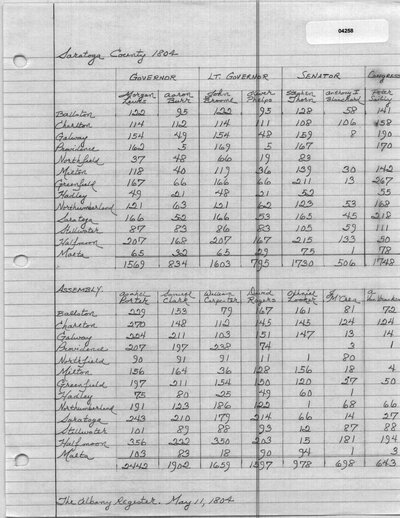 04258
Saratoga County 1804
GOVERNOR LT. GOVERNOR SENATOR Congress
Morgan Lewis Aaron Burr John Broome Oliver Phelps Stephen Thorn Anthony I. Blanchard Peter Sailly
Ballston 122 95 122 95 128 58 141
Charlton 114 112 114 111 108 106 158
Galway 154 49 154 48 159 8 190
Providence 162 5 169 5 167 170
Northfield 37 48 66 19 83
Milton 118 40 119 36 139 30 142
Greenfield 167 66 166 66 211 13 267
Hadley 49 21 48 21 52 55
Northumberland 121 63 121 62 123 53 168
Saratoga 166 52 166 53 165 45 218
Stillwater 87 83 86 83 105 59 111
Halfmoon 207 168 207 167 215 133 50
Malta 65 32 65 29 75 1 78
1569 834 1603 795 1730 506 1748
ASSEMBLY
Asahel Porter Samuel Clark William Carpenter David Rogers Othniel Looker
Ballston 229 153 79 167 161 81 72
Charlton 270 148 112 145 145 124 124
Galway 224 211 103 151 147 13 14
Providence 207 197 238 74 3 1
Northfield 90 91 91 11 1 80
Milton 156 164 36 128 156 18 4
Greenfield 197 211 154 150 120 37 50
Hadley 75 80 25 49 60 1
Northumberland 191 123 186 122 1 68 66
Saratoga 243 210 179 214 66 14 27
Stillwater 101 89 88 93 12 87 88
Halfmoon 356 222 350 203 15 181 194
Malta 103 83 18 90 94 1 3
2442 1902 1659 1597 978 698 643
The Albany Register. May 11, 1804